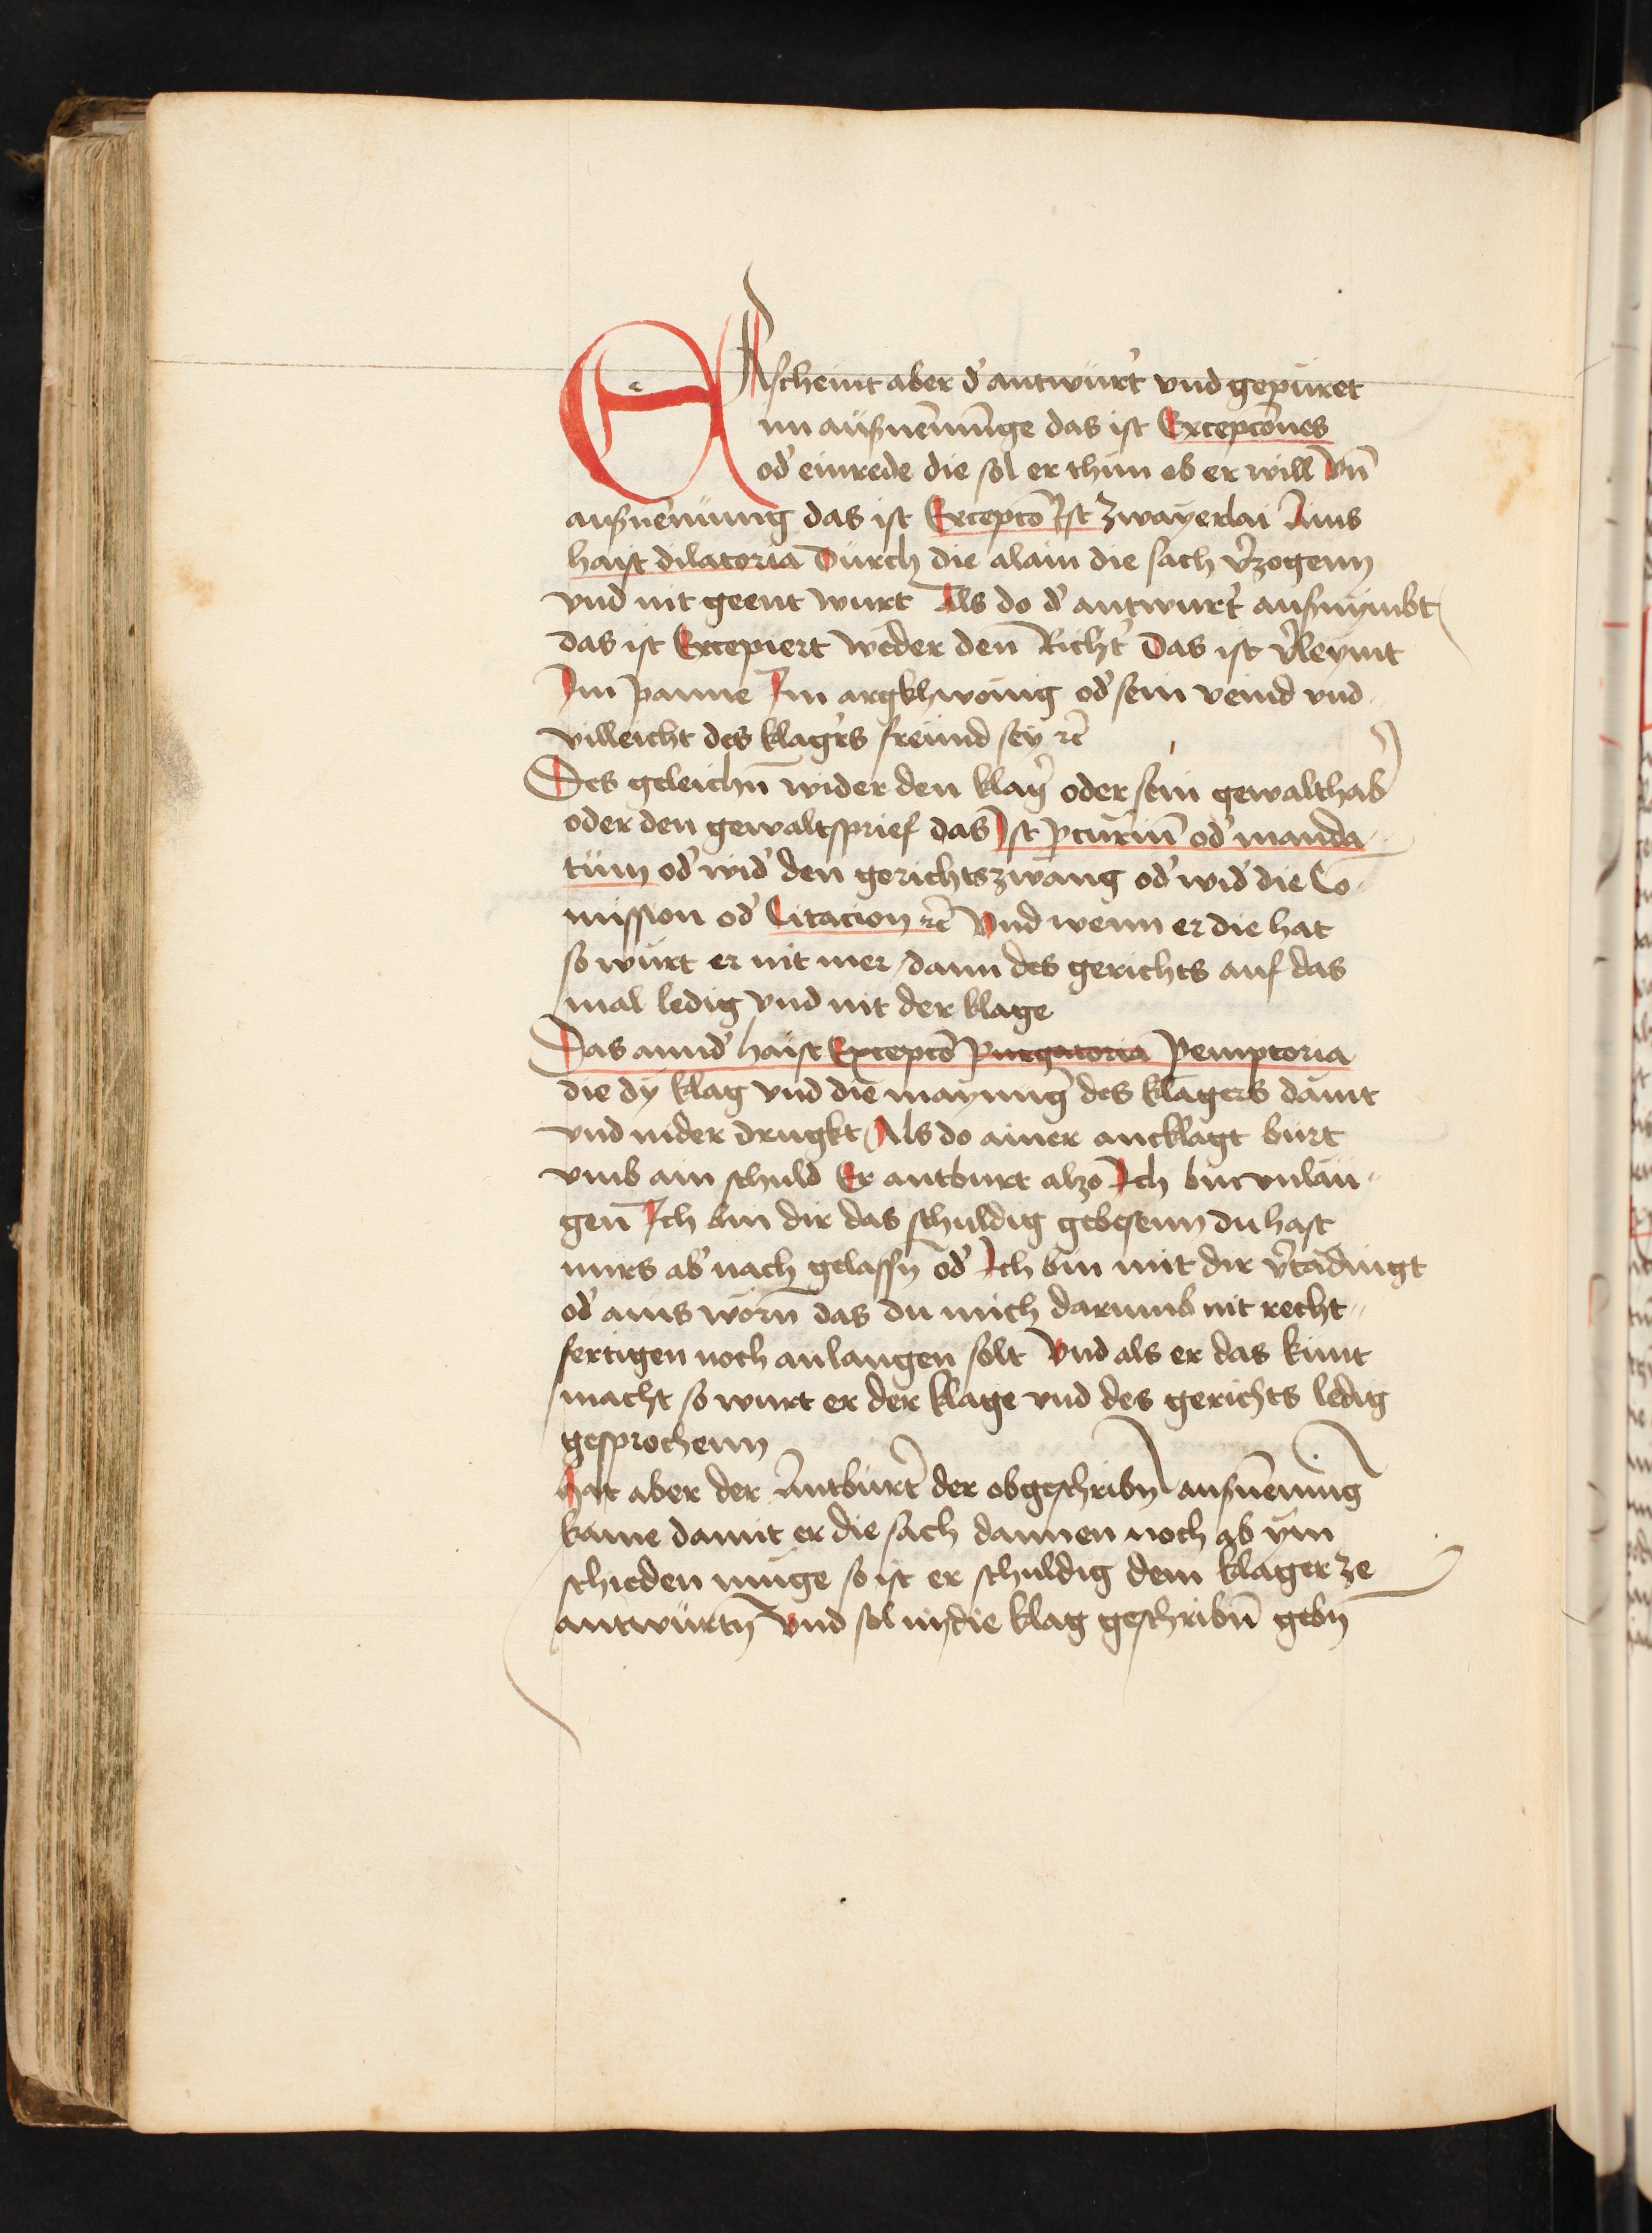 ERscheint aber d' antwürt' vnd gepüret
im aüsnem̄ūnge das ist Excepcōnes
od' einrede die sol er thün ob er will Vn̄
ausnemūng das ist Excepcō Ist Zwayerlai Ains
haist dilatoria Dürch die alain die sach v'zogenn
vnd nit geent wurt Als do d' antwurt' ausnymbt
das ist Excepiert wider den Richt' Das ist v'leymt
Im panne Im argkhwönig od' sein veind vnd
villeicht des klag'rs freünd sey rc̄
Des geleichn̄ wider den klag' oder sein gewalthab'
oder den gewaltsprief das Ist pcur'iu̅ od' manda-
tüm od' wid' den gerichtszwang od' wid' die Co-
mission od' Citacion rc̄ Vnd wenn er die hat
so würt er nit mer dann des gerichts auf das
mal ledig vnd nit der klage
Das annd' haist Excepcō Purgatoria Pemptoria
die dy klag vnd die maynung des klagers dämt
vnd nider drugkt Als do ainer ancklagt bürt
vmb ain schuld Er antburt alzo Ich bin vnlau-
gen̄ Ich bin dir das schuldig gebesenn du hast
mirs ab' nach gelassn̄ od' Ich bin mit dir v'tadingt
od' ains worn̄ das du mich darumb nit recht-
fertigen noch anlangen solt Vnd als er das künt
macht so wurt er der klage vnd des gerichts ledig
gesprochenn
Hat aber der Antbürt' der obgeschribn̄ ausnemung
kaine damit er die sach dannen noch ab ym
schieden müge so ist er schuldig dem klager ze
antwürtn̄ Vnd sol im die klag geschribn̄ gebn̄